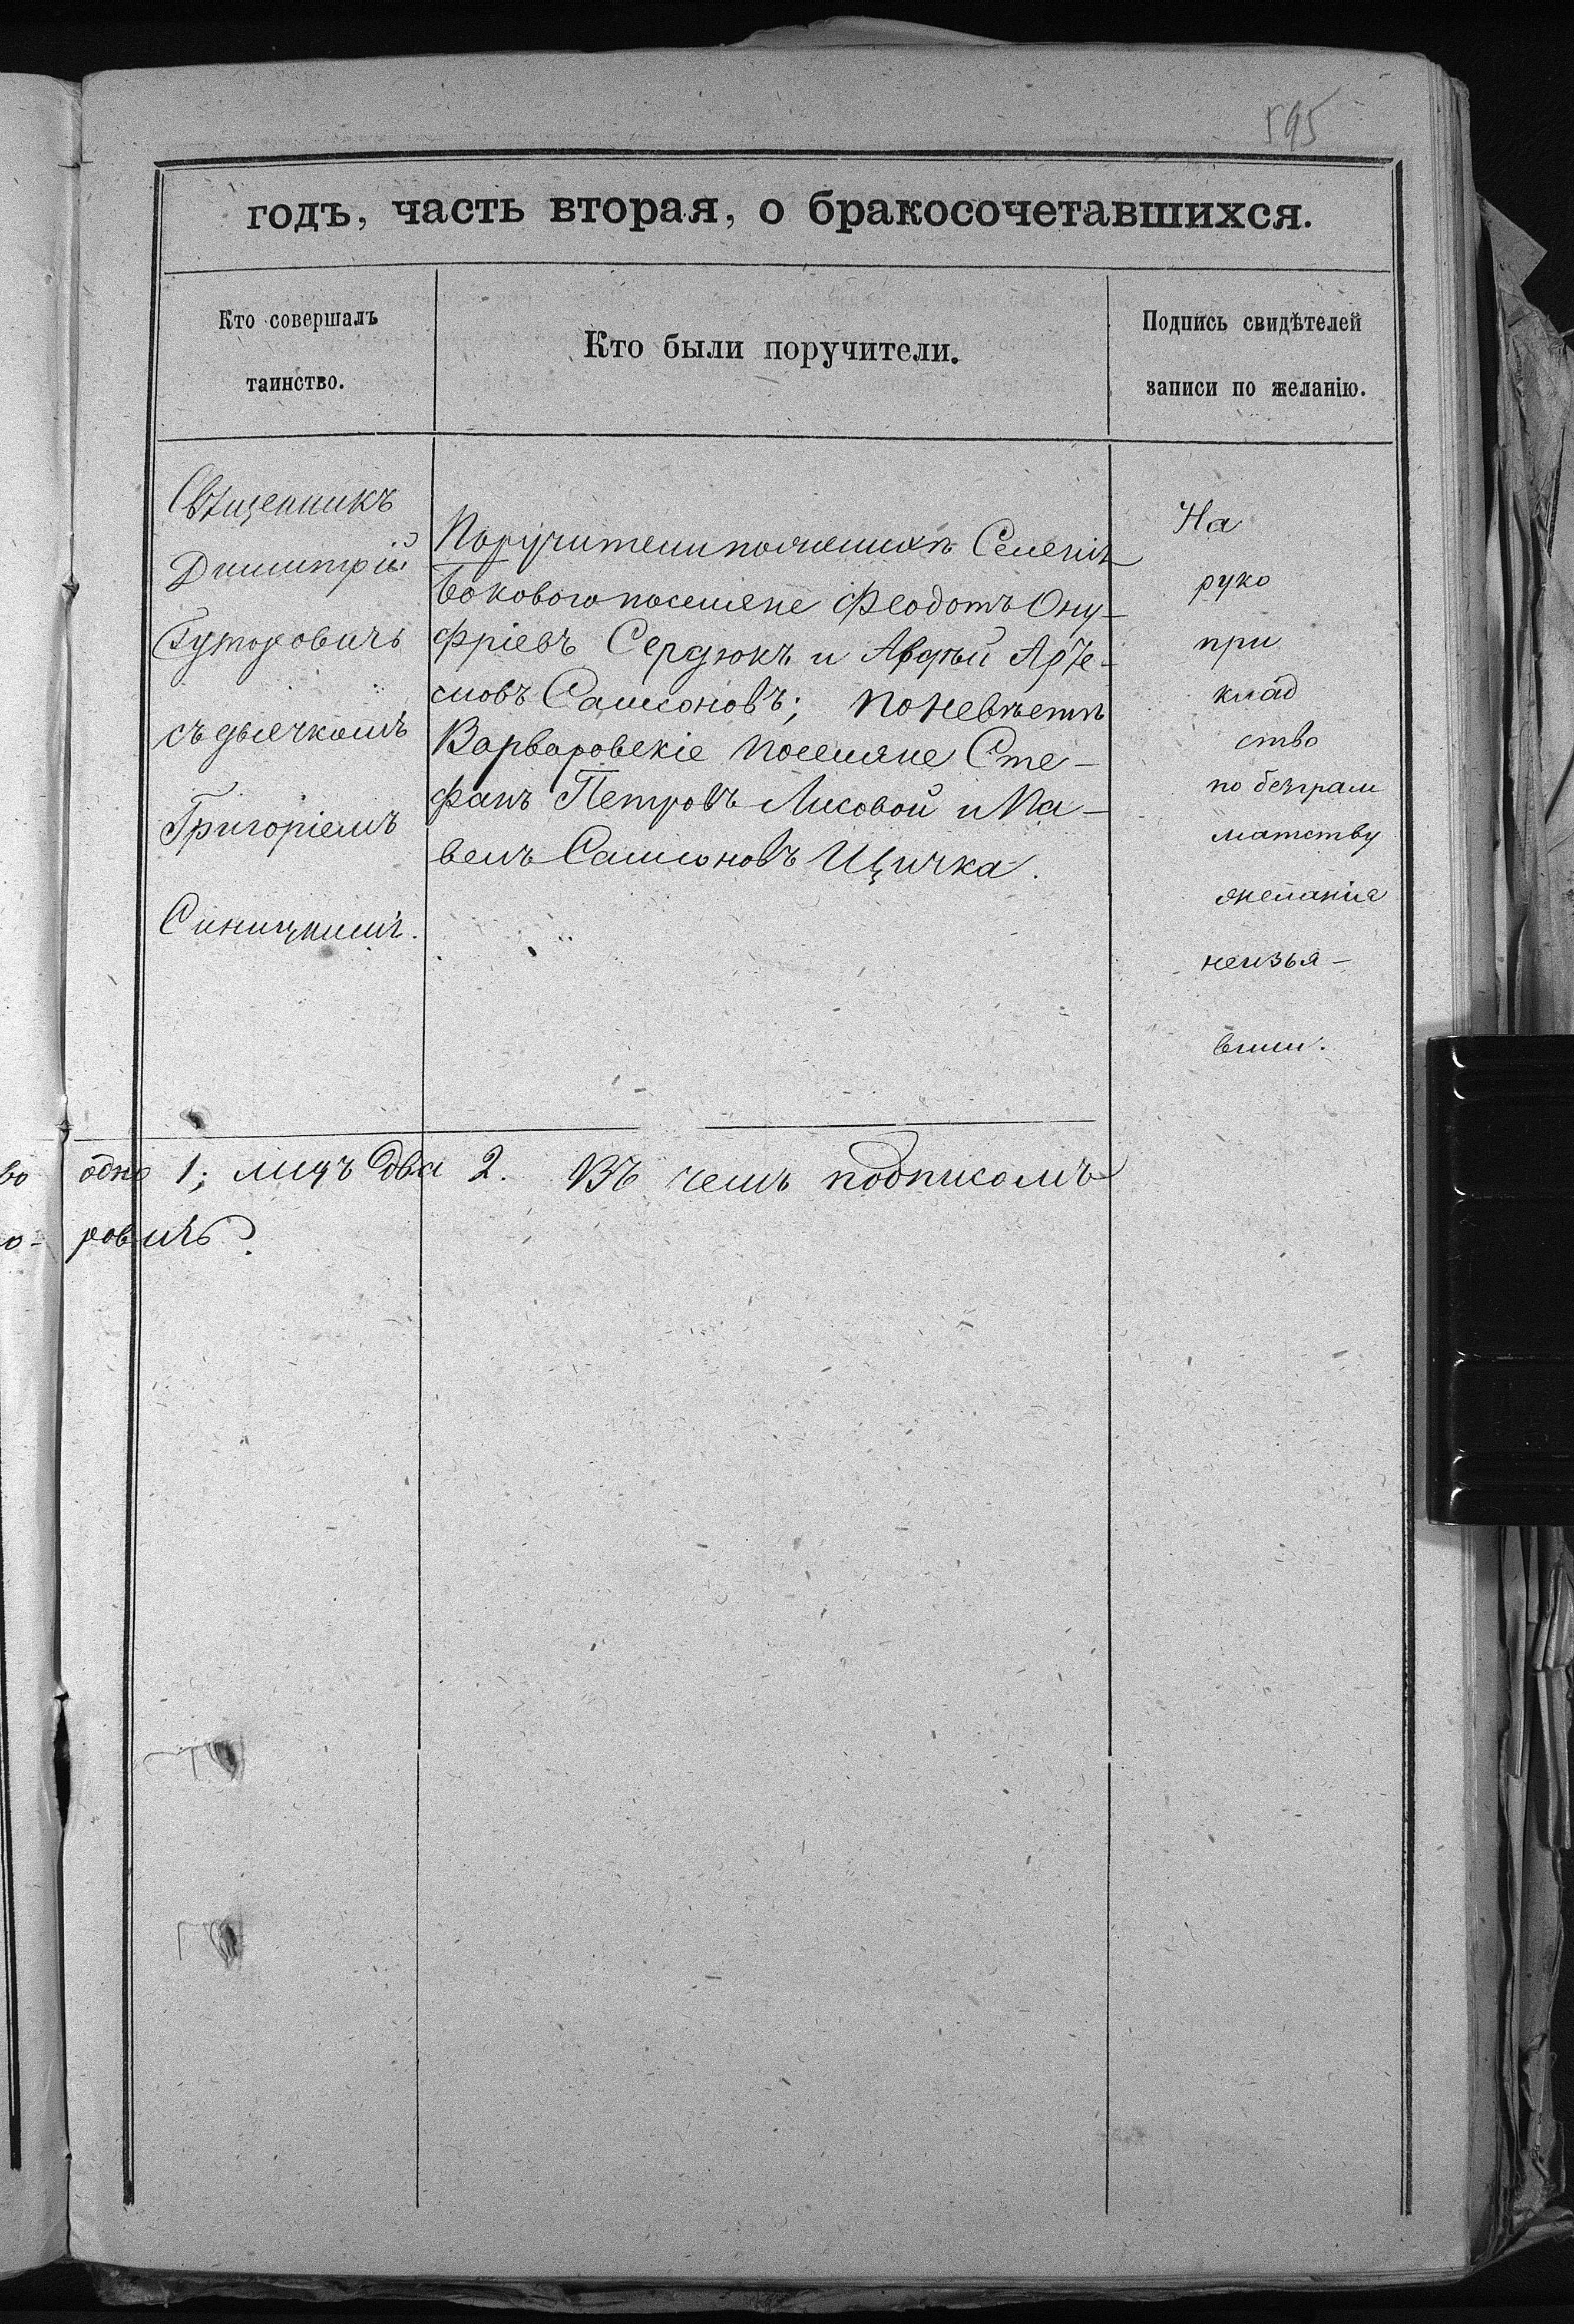 595
годъ, часть вторая, о бракосочетавшихся.
Кто совершалъ
таинство.
Кто были поручители.
Подпись свидѣтелей
записи по желанію.
Священникъ
Димитрій
Гуторовичъ
съ дьячкомъ
Григоріемъ
Синицкимъ.
Поручители по женихѣ Селенія
Бокового поселяне Феодотъ Ону-
фріевъ Сердюкъ и Авдѣй Арте-
мовъ Самсоновъ; по невѣстѣ
Варваровскіе поселяне Сте-
фанъ Петровъ Лисовой и Па-
велъ Самсоновъ Щичка.
На
руко
при
клад
ство
по безграм
матству
желанія
неизъя-
вили.
во одно 1; лицъ два 2. Въ чемъ подписомъ
о- ровичъ.